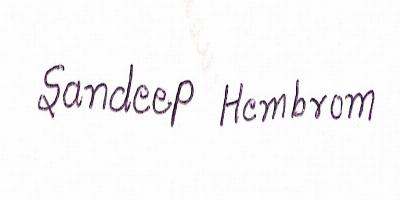 Sandeep Hembrom